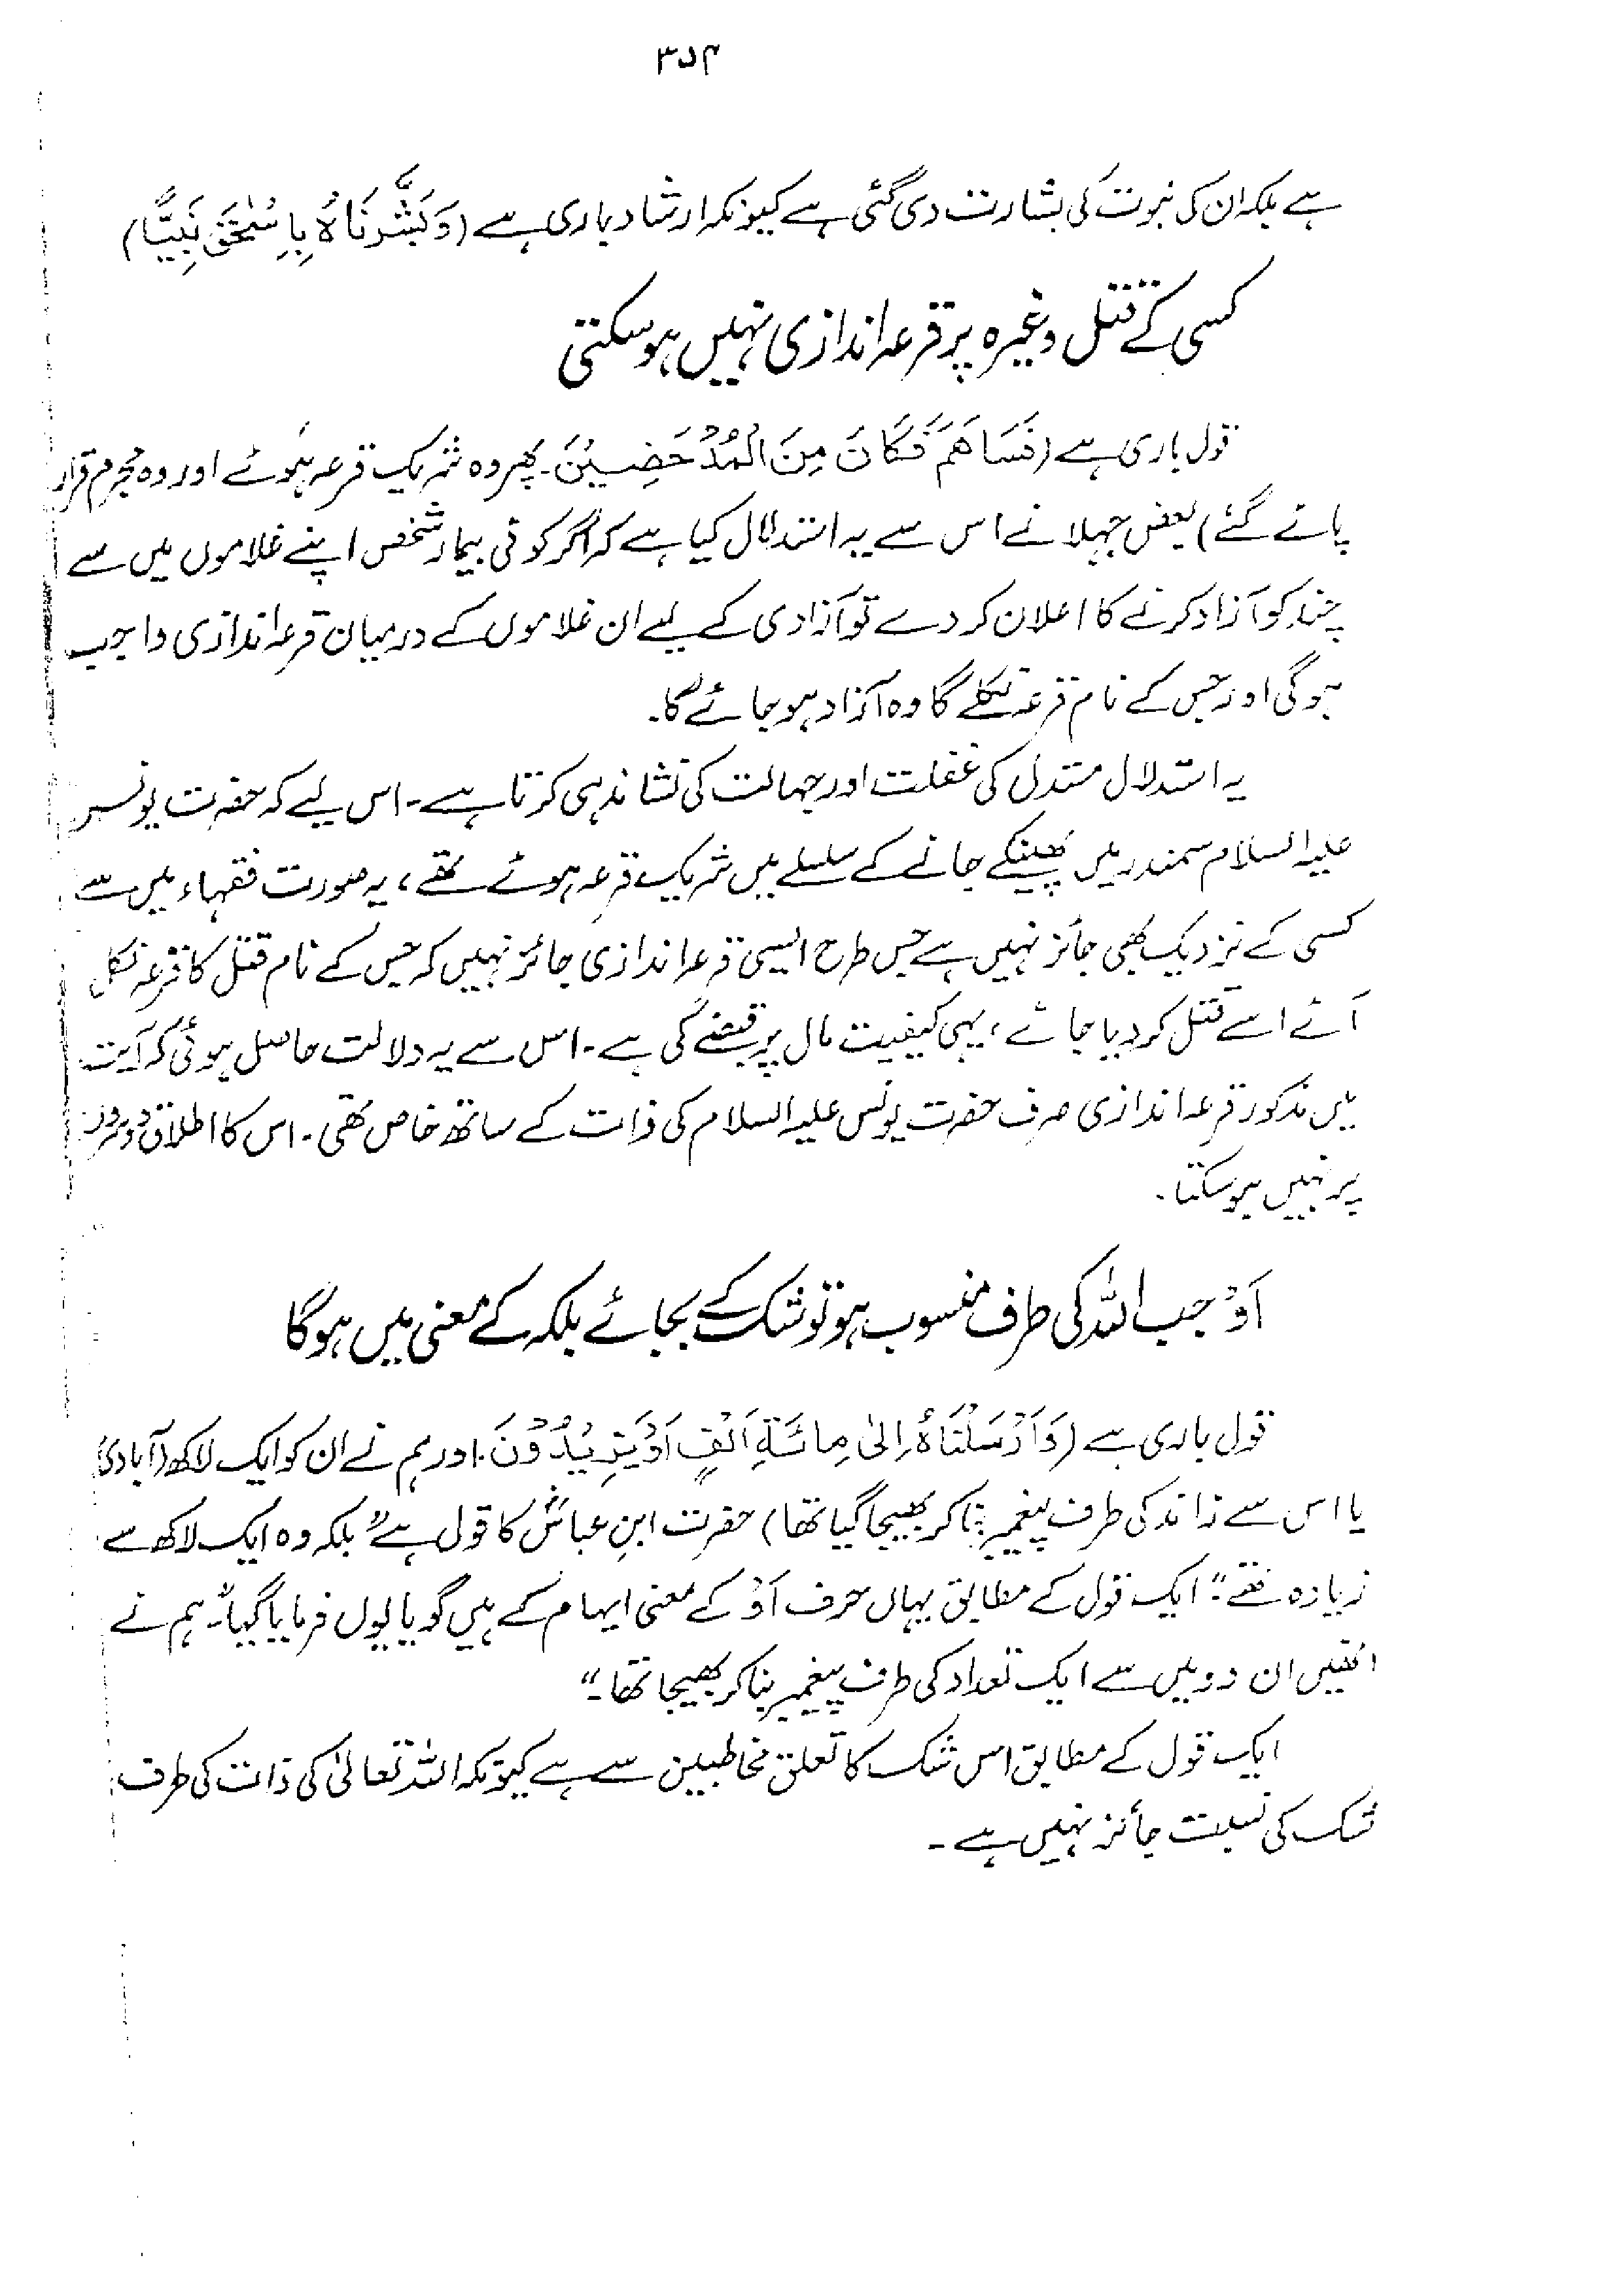 ۳۵۴
ہے بلکہ ان کی نبوت کی بشارت دی گئی ہے کیونکہ ارشاد باری ہے (وَبَشَّرْنَاهُ بِاِسْحٰقَ نَبِيًّا)
کسی کے قتل وغیرہ پر قرعہ اندازی نہیں ہو سکتی
قول باری ہے (فَسَاهَمَ فَكَانَ مِنَ الْمُدْحَضِيْنَ۔ پھر وہ شریک قرعہ ہوئے اور وہ مجرم قرار
پائے گئے) بعض جہلا نے اس سے یہ استدلال کیا ہے کہ اگر کوئی بیمار شخص اپنے غلاموں میں سے
چند کو آزاد کرنے کا اعلان کر دے تو آزادی کے لیے ان غلاموں کے درمیان قرعہ اندازی واجب
ہوگی اور جس کے نام قرعہ نکلے گا وہ آزاد ہو جائے گا۔
یہ استدلال مستدل کی غفلت اور جہالت کی نشاندہی کرتا ہے۔ اس لیے کہ حضرت یونس
علیہ السلام سمندر میں پھینکے جانے کے سلسلے میں شریک قرعہ ہوئے تھے، یہ صورت فقہاء میں سے
کسی کے نزدیک بھی جائز نہیں ہے جس طرح ایسی قرعہ اندازی جائز نہیں کہ جس کے نام قتل کا قرعہ نکل
آئے اسے قتل کر دیا جائے، یہی کیفیت مال پر قبضے کی ہے۔ اس سے یہ دلالت حاصل ہوئی کہ آیت
میں مذکور قرعہ اندازی صرف حضرت یونس علیہ السلام کی ذات کے ساتھ خاص تھی۔ اس کا اطلاق دوسروں
پر نہیں ہو سکتا۔
اَوْ جب اللہ کی طرف منسوب ہو تو شک کے بجائے بلکہ کے معنی میں ہوگا
قول باری ہے (وَاَرْسَلْنَاهُ اِلٰى مِائَةِ اَلْفٍ اَوْ يَزِيْدُوْنَ۔ اور ہم نے ان کو ایک لاکھ (آبادی)
یا اس سے زائد کی طرف پیغمبر بنا کر بھیجا گیا تھا) حضرت ابن عباسؓ کا قول ہے "بلکہ وہ ایک لاکھ سے
زیادہ تھے"۔ ایک قول کے مطابق یہاں حرف اَوْ کے معنی ابہام کے ہیں گویا یوں فرمایا گیا "ہم نے
انھیں ان دو میں سے ایک تعداد کی طرف پیغمبر بنا کر بھیجا تھا۔"
ایک قول کے مطابق اس شک کا تعلق مخاطبین سے ہے کیونکہ اللہ تعالیٰ کی ذات کی طرف
شک کی نسبت جائز نہیں ہے۔